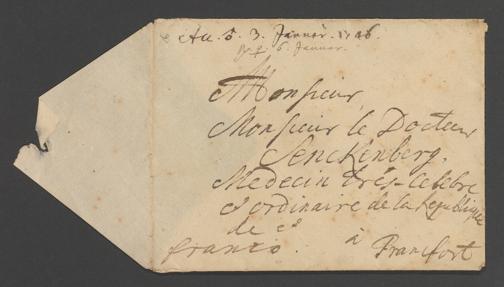 Acc. d. 3. Januar. 1746.
6. Januar.
Monsieur,
Monsieur le Docteur
Senckenberg,
Medecin très-celebre
& ordinaire de la Republique
de &
franco. à Francfort